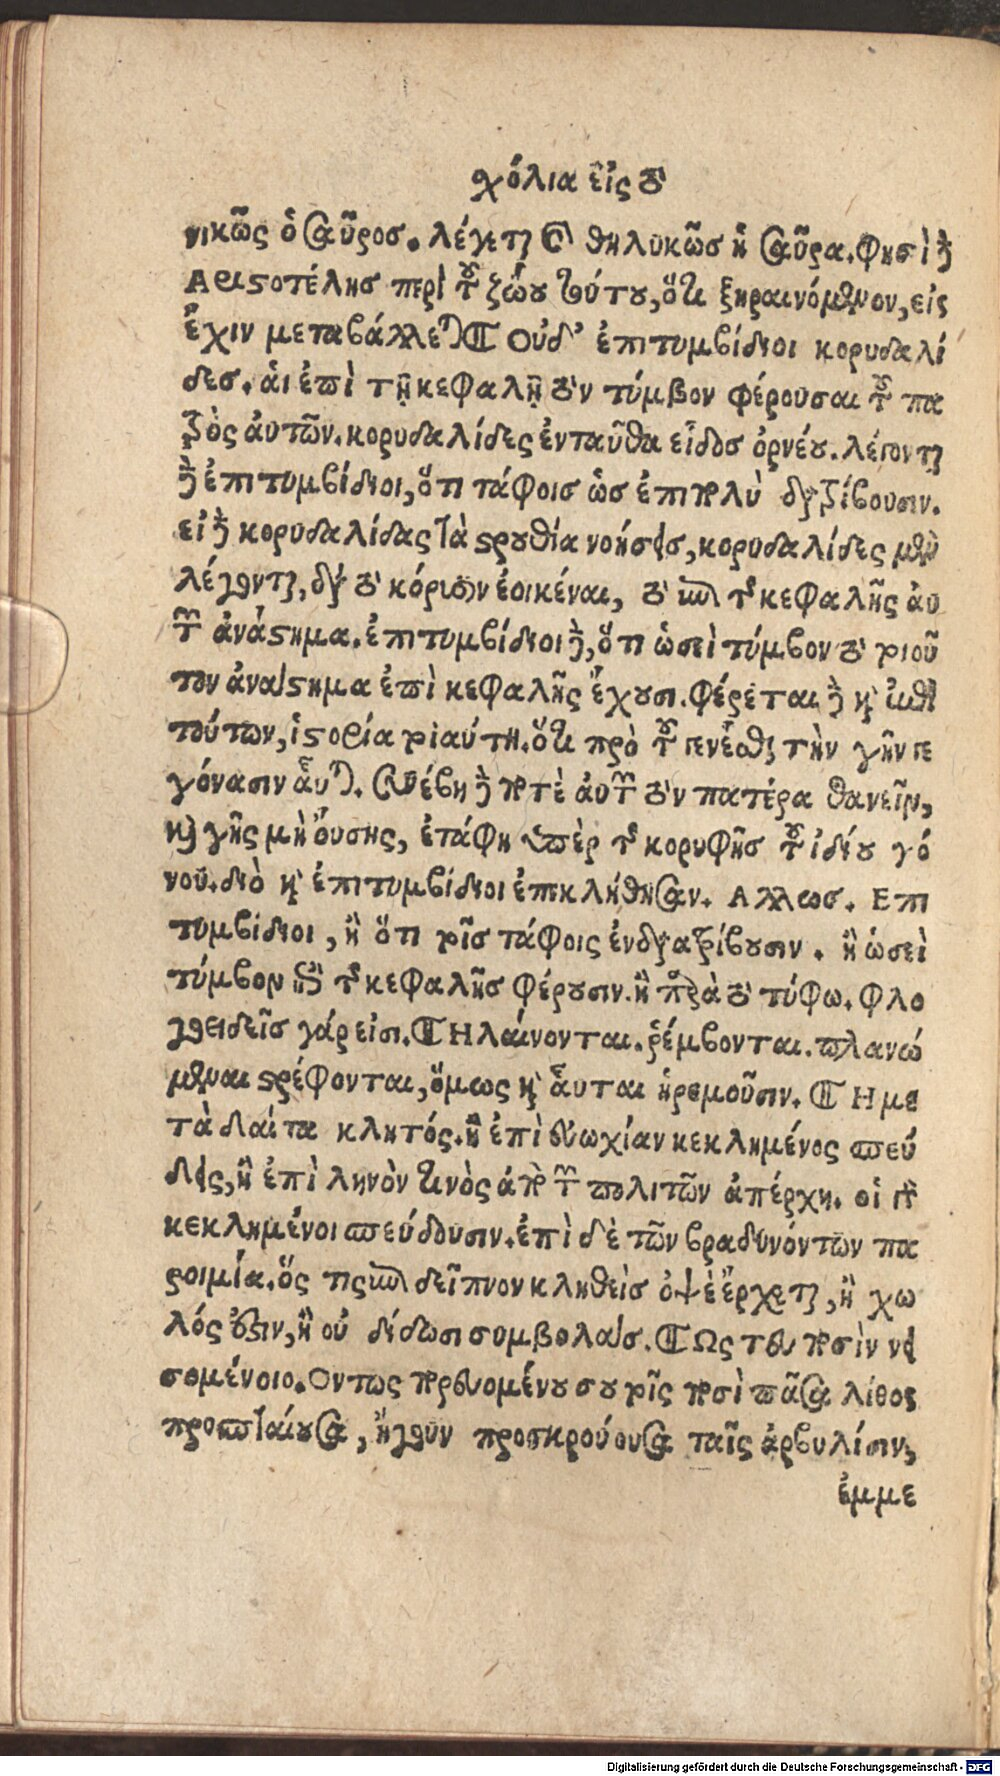 χόλια εἰς τὸ
νικῶς ὁ σαῦρος. λέγεται καὶ θηλυκῶς ἡ σαῦρα. φησὶ δὲ
Αριστοτέλης περὶ τοῦ ζώου τούτου, ὅτι ξηραινόμενον, εἰς
ἔχιν μεταβάλλεται Οὐδ’ ἐπιτυμβίδιοι κορυδαλί
δες. αἱ ἐπὶ τῇ κεφαλῇ τὸν τύμβον φέρουσαι τοῦ πα
τρὸς ἀυτῶν. κορυδαλίδες ἐνταῦθα εἶδος ὀρνέου. λέγονται
δὲ ἐπιτυμβίδιοι, ὅτι τάφοις ὡς ἐπιπολὺ διατρίβουσιν.
εἰ δὲ κορυδαλίδας τὰ στρουθία νοήσεις, κορυδαλίδες μὲν
λέγονται, διὰ τὸ κόρυθιν ἐοικέναι, τὸ ἐπὶ τῆς κεφαλῆς ἀυ
τῶν ἀνάστημα. ἐπιτυμβίδιοι δὲ, ὅτι ὡσεὶ τύμβον τὸ τοιοῦ
τον ἀνάστημα ἐπὶ κεφαλῆς ἔχουσι. φέρεται δὲ καὶ ἐπὶ
τούτων, ἱστορία τοιαύτη. ὅτι πρὸ τοῦ γενέσθαι τὴν γῆν γε
γόνασιν ἆυται. συνέβη δὲ ποτὲ ἀυτῶν τὸν πατέρα θανεῖν,
καὶ γῆς μὴ ὄυσης, ἐτάφη ὑπὲρ τῆς κορυφῆς τοῦ ἰδίου γό
νου. διὸ καὶ ἐπιτυμβίδιοι ἐπεκλήθησαν. Αλλως. Επι
τυμβίδιοι, ἢ ὅτι τοῖς τάφοις ἐνδιατρίβουσιν. ἢ ὡσεὶ
τύμβον ἐπὶ τῆς κεφαλῆς φέρουσιν. ἢ παρὰ τὸ τύφω. φλο
γοειδεῖς γάρ εἰσι. Ηλαίνονται. ῥέμβονται. πλανώ
μεναι στρέφονται, ὅμως καὶ ἆυται ἠρεμοῦσιν. Η με
τὰ δαῖτα κλητός. ἢ ἐπὶ εὐωχίαν κεκλημένος σπεύ
δεις, ἢ ἐπὶ ληνὸν τινὸς ἀπὸ τῶν πολιτῶν ἀπέρχη. οἱ γὰρ
κεκλημένοι σπεύδουσιν. ἐπὶ δὲ τῶν βραδυνόντων πα
ροιμία. ὅς τις ἐπὶ δεῖπνον κληθεὶς ὀψὲ ἔρχεται, ἢ χω
λός ἐστιν, ἢ οὐ δίδωσι συμβολάς. Ως τευ ποσὶν νει
σομένοιο. Οντως πορευομένου σου τοῖς ποσὶ πᾶσα λίθος
προσπταίουσα, ἤγουν προσκρούουσα ταῖς ἀρβυλίσιν,
ἐμμε
Digitalisierung gefördert durch die Deutsche Forschungsgemeinschaft - DFG